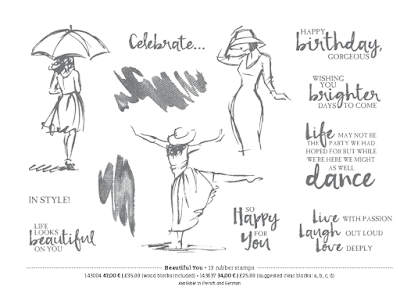 Celebrate...
HAPPY
birthday,
GORGEOUS
WISHING
YOU
brighter
DAYS TO COME
Life MAY NOT BE
THE PARTY WE HAD
HOPED FOR BUT WHILE
WE'RE HERE WE MIGHT
AS WELL
dance
IN STYLE!
LIFE
LOOKS
beautiful
ON YOU
SO
Happy
FOR
You
Live WITH PASSION
Laugh OUT LOUD
Love DEEPLY
Beautiful You • 13 rubber stamps
143004 47,00 € | £35.00 (wood blocks included) • 143637 34,00 € | £25.00 (suggested clear blocks: a, b, c, d)
Available in French and German